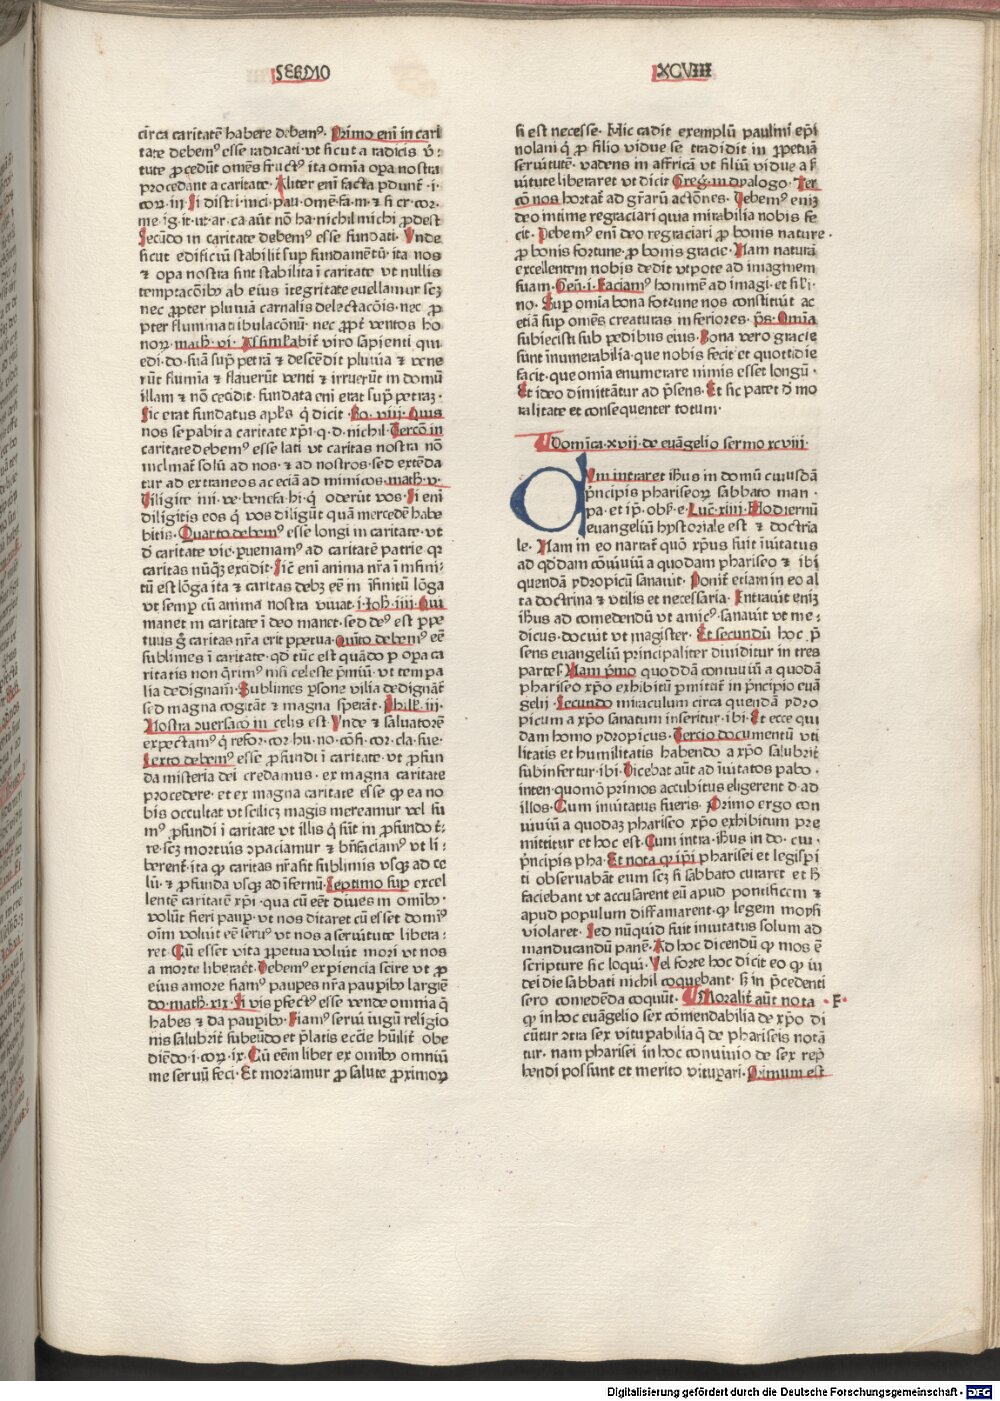 SERMO
XCVIII
cīrca caritatē habere debem⁹. Primo em̄ in cari
tate debem⁹ esse radicati. vt sicut a radicis v̓
tute ꝓcedūt omēs fruct⁹ ita om̄ia opa nostra
procedant a caritate. Aliter em̄ facta ꝓdunt. i.
cor. iii. Si distri. in ci. pau. omē. fa. m. ⁊ si cr. cor.
me. ig. it. ut. ar. ca. aūt nō ha. nichil michi ꝓdest
Secūdo in caritate debem⁹ esse fundati. Unde
sicut edificiū stabilit̄ sup fundamētū. ita nos
⁊ opa nostra sint stabilita ī caritate vt nullis
temptacōib⁹ ab eius ītegritate euellamur scꝫ
nec ꝓpter pluuiā carnalis delectacōis. nec ꝓ
pter flumina tribulacōnū. nec ꝓpt̄ ventos ho
noꝝ. math. vi. Assimilabit̄ viro sapienti qui
edi. do. suā sup̄ petrā ⁊ descēdit pluuia ⁊ vene
rūt flumīa ⁊ flauerūt venti ⁊ irruerūt in domū
illam ⁊ nō cecidit. fundata em̄ erat sup̄ petraꝫ.
Sic erat fundatus apl̄s q̄ dicit. Ro. viii. Quis
nos sepabit a caritate xp̄i. q. d. nichil. Tercō in
caritate debem⁹ esse lati vt caritas nostra nō
inclinat̄ solū ad nos. ⁊ ad nostros. sed extēda
tur ad extraneos ac eciā ad inimicos. math. v.
Diligite ini. ve. benefa. hi. q̄ oderūt vos. Si em̄
diligitis eos q̄ vos diligūt quā mercedē habe
bitis. Quarto debem⁹ esse longi in caritate. vt
d̄ caritate vie. ꝑueniam⁹ ad caritatē patrie qꝛ
caritas nūqꝫ excidit. Sic̄ em̄ anima nr̄a ī infini
tū est lōga ita ⁊ caritas debꝫ eē in īfinitū lōga
vt semp̄ cū anima nostra viuat. i. Joh̄. iiii. Qui
manet in caritate ī deo manet. sed de⁹ est ꝑpe
tuus ḡ caritas nr̄a erit ꝑpetua. Quīto debem⁹ eē
sublimes ī caritate. qd̄ tūc est quādo ꝑ opa ca
ritatis non q̄rim⁹ nisi celeste p̄miū. vt tempa
lia dedignam̄. Sublimes ꝑsone vilia dedignāt̄
sed magna cogitāt ⁊ magna sperāt. Phil̓. iii.
Nostra ↄuersacō in celis est. Unde ⁊ saluatorē
expectam⁹ q̄ refor. cor. hu. no. cōfi. cor. cla. sue.
Sexto debem⁹ esse ꝓfundi ī caritate. vt ꝓfun
da misteria dei credamus. ex magna caritate
procedere. et ex magna caritate esse ꝙ ea no
bis occultat vt scilicꝫ magis mereamur vel su
m⁹ ꝓfundi ī caritate vt illis q̄ sūt in ꝓfundo t̄r
re. scꝫ mortuis ↄpaciamur ⁊ bn̄faciam⁹ vt li
berent̄. ita ꝙ caritas nr̄a sit sublimis vsqꝫ ad ce
lū. ⁊ ꝓfunda vsqꝫ ad īfernū. Septimo sup excel
lentē caritatē xp̄i. qua cū eēt diues in omib⁹.
voluit fieri paup̄. vt nos ditaret cū esset dom⁹
oīm voluit eē seru⁹ vt nos a seruitute libera
ret. Cū esset vita ꝑpetua voluit mori vt nos
a morte liberaēt. Debem⁹ exp̄iencia scire vt ꝓ
eius amore fiam⁹ paupes nr̄a paupib⁹ largiē
do. math. xix. Si vis ꝑfect⁹ esse vende omnia q̄
habes ⁊ da paupib⁹. Fiam⁹ serui iugū religio
nis salubrit̄ subeūdo et p̄latis eccl̄ie hūilit̄ obe
diēdo. i. cor. ix. Cū eēm liber ex omib⁹ omniū
me seruū feci. Et moriamur ꝓ salute ꝓximoꝝ
si est necesse. Hic cadit exemplū paulini ep̄i
nolani q̄ ꝓ filio vidue se tradidit in ꝑpetuā
seruitutē. vadens in affricā vt filiū vidue a s̄
uitute liberaret vt dicit Greg. in dyalogo. Ter
cō nos hortat̄ ad gr̄arū actōnes. Debem⁹ enīꝫ
deo intime regraciari quia mirabilia nobis fe
cit. Debem⁹ em̄ deo regraciari ꝓ bonis nature.
ꝓ bonis fortune. ꝓ bonis gracie. Nam naturā
excellentem nobis dedit vtpote ad imaginem
suam. Geñ. i. Faciam⁹ hominē ad imagi. et sili.
no. Sup om̄ia bona fortune nos constituit ac
etiā sup omēs creaturas inferiores. ps̄. Omīa
subiecisti sub pedibus eius. Bona vero gracie
sunt īnumerabilia. que nobis fecit et quottidie
facit. que omīa enumerare nimis esset longū.
Et ideo dimittātur ad p̄sens. Et sic patet d̄ mo
ralitate et consequenter totum.
Domīca. xvii. de euāgelio sermo xcviii.
Um intraret ih̄us in domū cuiusdā
p̄ncipis phariseoꝝ sabbato man.
pa. et ip̄i. obs̄. e. Luc̄. xiiii. Hodiernū
euangeliū hystoriale est ⁊ doctria
le. Nam in eo narrat̄ quō xp̄us fuit īuitatus
ad qd̄dam cōuiuiū a quodam phariseo ⁊ ibi
quendā ydropicū sanauit. Ponit̄ etiam in eo al
ta doctrina ⁊ vtilis et necessaria. Intrauit enīꝫ
ih̄us ad comedendū vt amic⁹. sanauit vt me⸗
dicus. docuit vt magister. Et secundū hoc p̄
sens euangeliū principaliter diuiditur in tres
partes. Nam p̄mo quoddā conuiuiū a quodā
phariseo xp̄o exhibitū p̄mittit̄ in p̄ncipio euā
gelij. Secundo miraculum circa quendā ydro
picum a xp̄o sanatum inseritur. ibi. Et ecce qui
dam homo ydropicus. Tercio documentū vti
litatis et humilitatis habendo a xp̄o salubrit̄
subinfertur. ibi. Dicebat aūt ad īuitatos pabo.
inten. quomō primos accubitus eligerent d. ad
illos. Cum inuitatus fueris. Primo ergo con
uiuiū a quodaꝫ phariseo xp̄o exhibitum pre
mittitur et hoc est. Cum intra. ih̄us in do. cui.
p̄ncipis pha. Et nota qꝛ ip̄i pharisei et legisperi
ti obseruabāt eum scꝫ si sabbato curaret et h̄
faciebant vt accusarent eū apud pontificem ⁊
apud populum diffamarent. ꝙ legem moysi
violaret. Sed nūquid fuit inuitatus solum ad
manducandū panē. Ad hoc dicendū ꝙ mos ē
scripture sic loqui. Vel forte hoc dicit eo ꝙ iu
dei die sabbati nichil coquebant. sȝ in p̄cedenti
sero comedēda coquūt. Moralit̄ aūt nota
F
ꝙ in hoc euāgelio sex cōmendabilia de xp̄o di
cūtur ↄtra sex vitupabilia q̄ de phariseis notā
tur. nam pharisei in hoc conuiuio de sex rep̄
hendi possunt et merito vitupari. Primum est
Digitalisierung gefördert durch die Deutsche Forschungsgemeinschaft - DFG